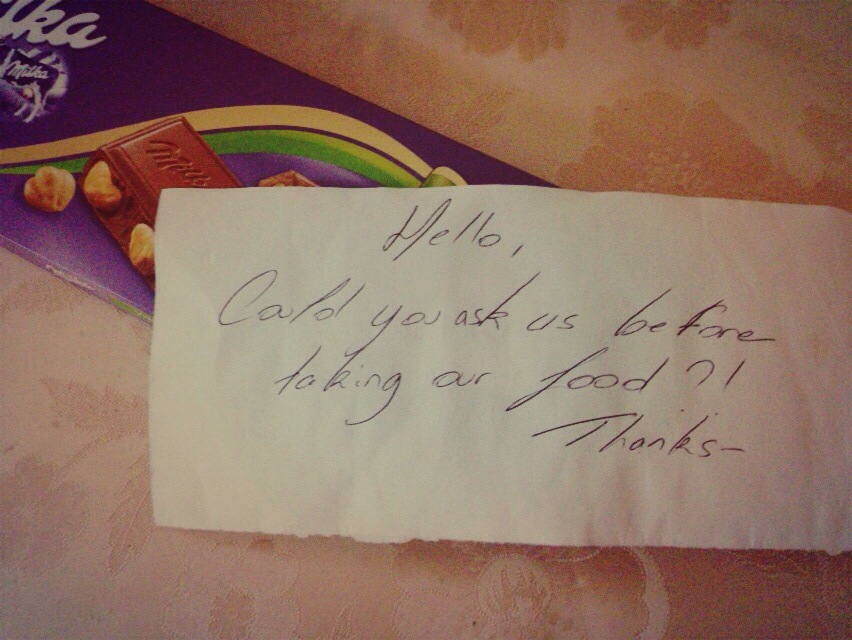 lka
Milka
Milka
Hello,
Could you ask us before
taking our food?!
Thanks-